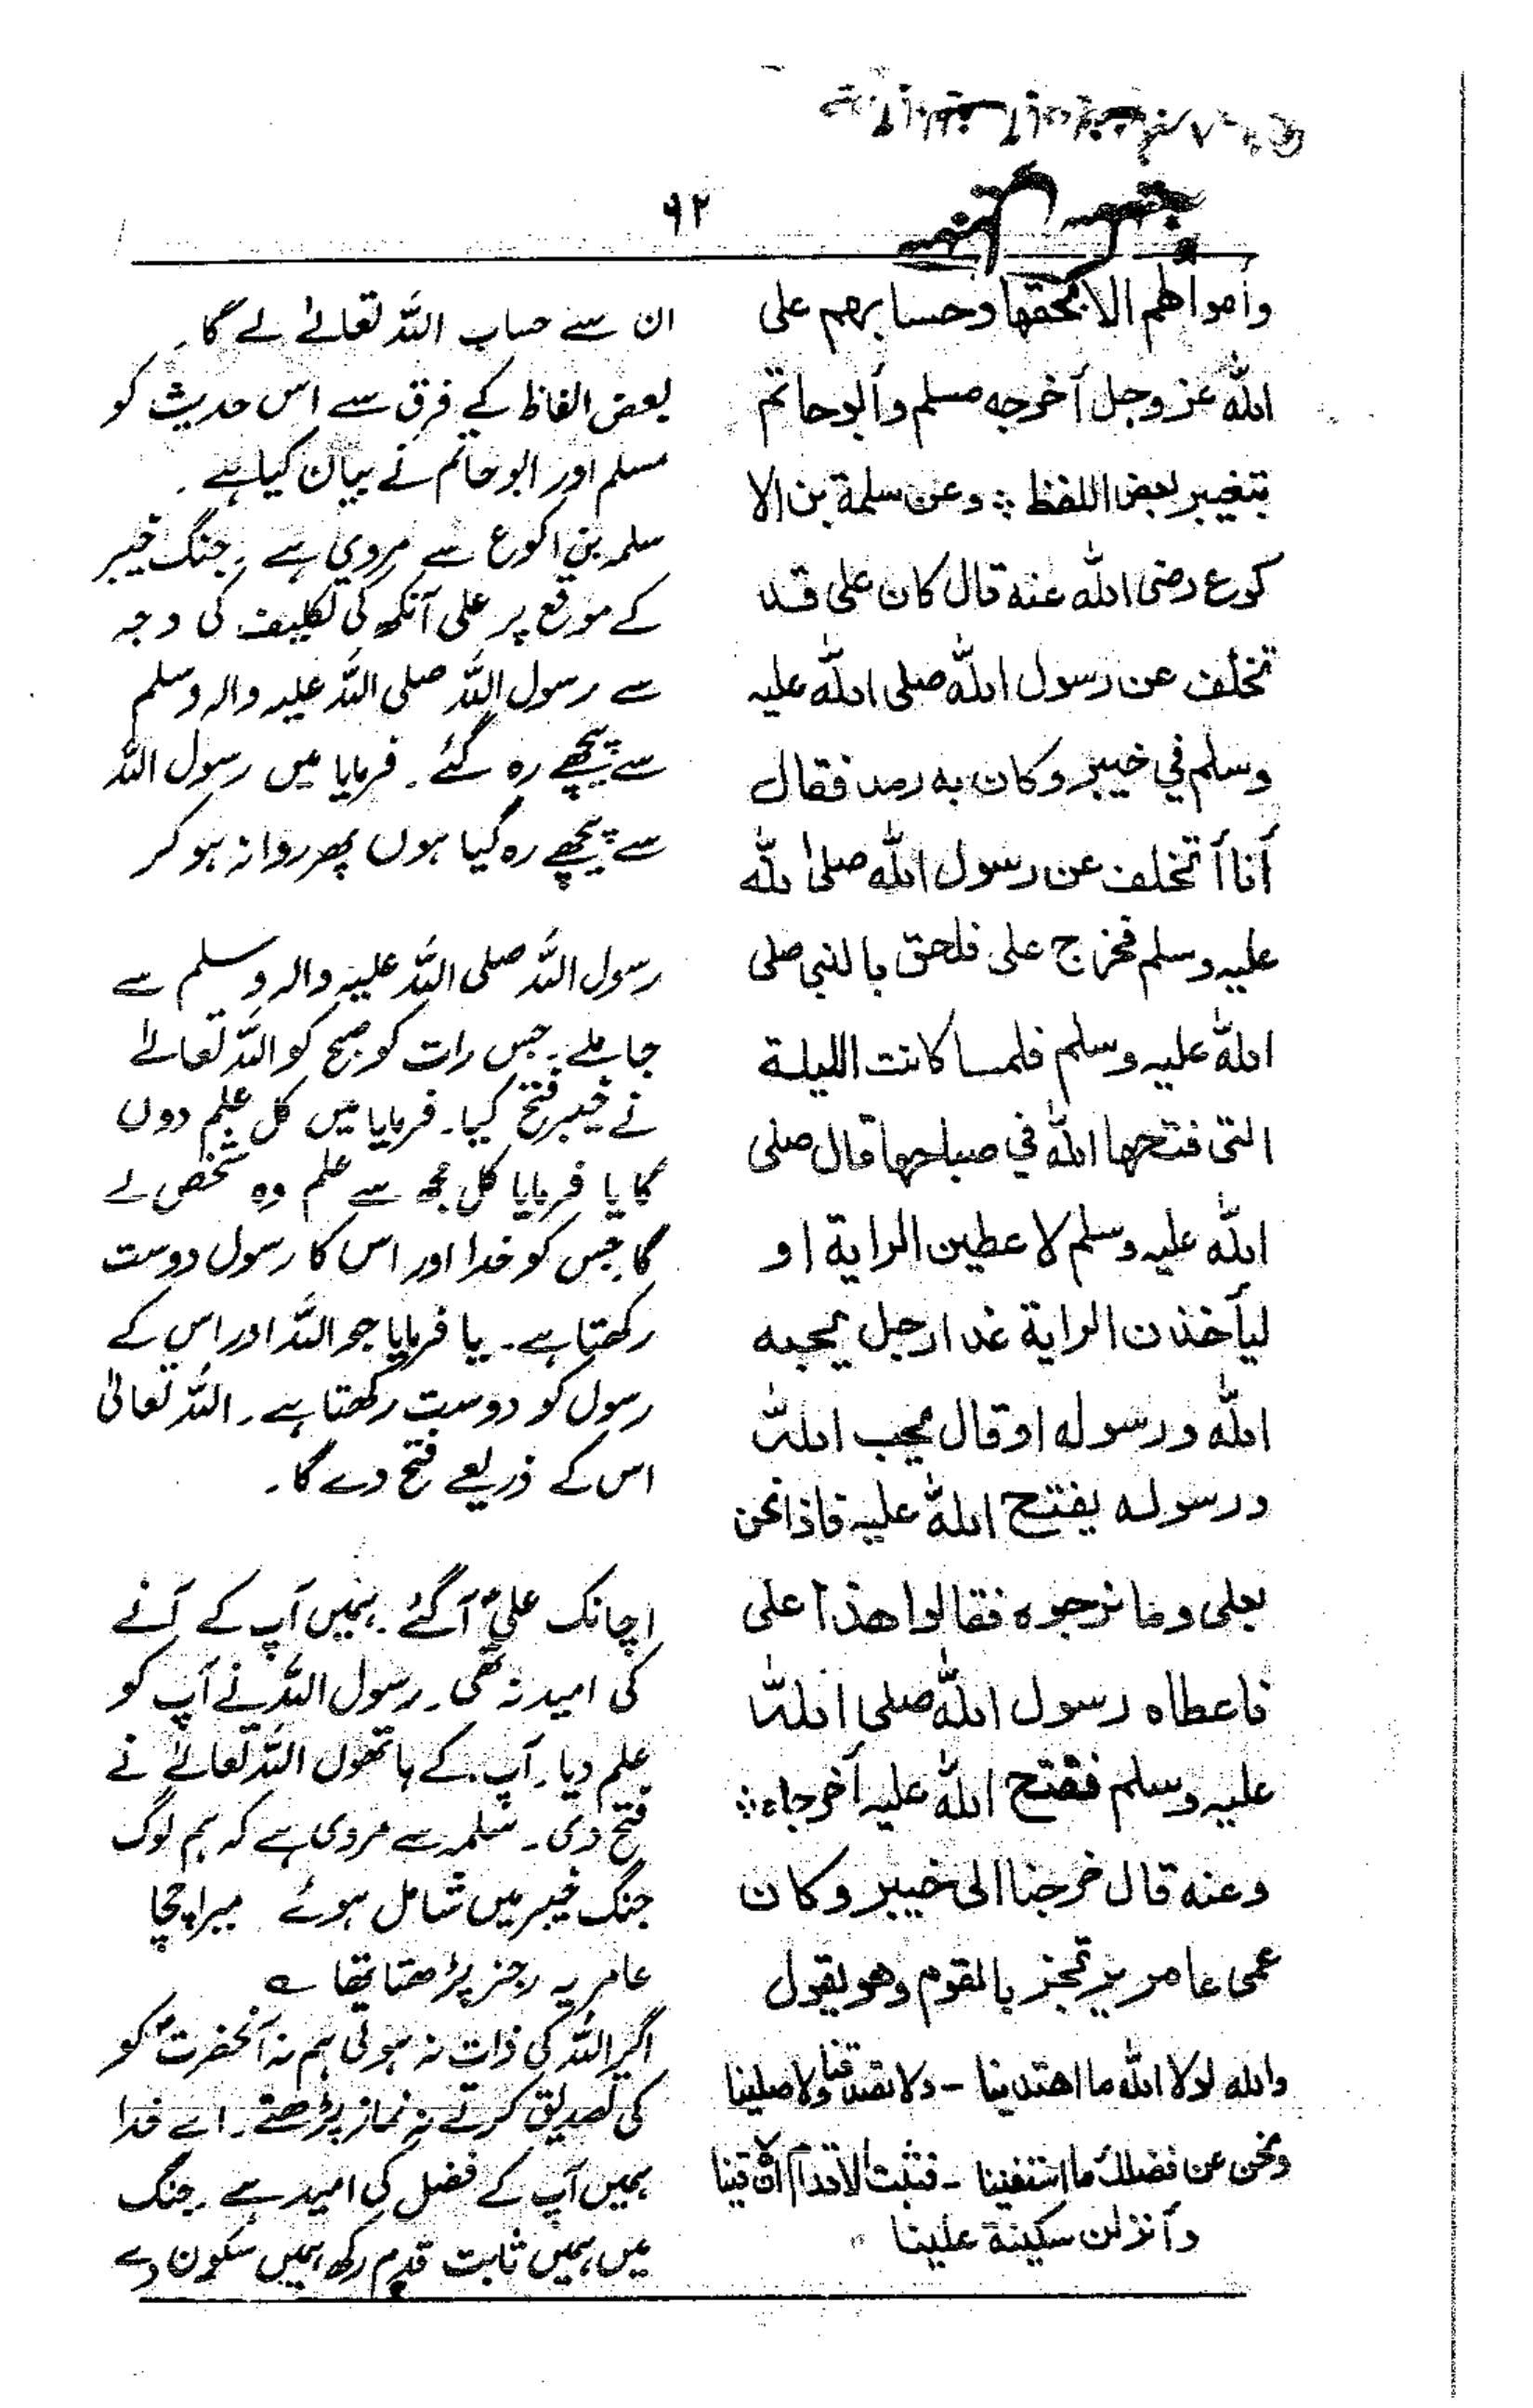 ۹۲
وأموالهم الا بحقها وحسابهم على
الله عز وجل أخرجه مسلم وأبوحاتم
بتغيير بعض اللفظ ؞ وعن سلمة بن الا
كوع رضى الله عنه قال كان على قد
تخلف عن رسول الله صلى الله عليه
وسلم في خيبر وكان به رمد فقال
أنا أتخلف عن رسول الله صلى الله
عليه وسلم فخرج على فلحق بالنبى صلى
الله عليه وسلم فلما كانت الليلة
التى فتحها الله في صباحها قال صلى
الله عليه وسلم لاعطين الراية او
ليأخذن الراية غدا رجل يحبه
الله ورسوله او قال يحب الله
ورسوله يفتح الله عليه فاذا نحن
بعلى وما نرجوه فقالوا هذا على
فاعطاه رسول الله صلى الله
عليه وسلم ففتح الله عليه أخرجاه ؞
وعنه قال خرجنا الى خيبر وكان
عمى عامر يرتجز بالقوم وهو يقول
والله لولا الله ما اهتدينا - ولا تصدقنا ولا صلينا
ونحن عن فضلك ما استغنينا - فثبت الاقدام ان لاقينا
وأنزلن سكينة علينا
ان سے حساب اللہ تعالےٰ لے گا۔
بعض الفاظ کے فرق سے اس حدیث کو
مسلم اور ابو حاتم نے بیان کیا ہے۔
سلمہ بن اکوع سے مروی ہے۔ جنگ خیبر
کے موقع پر علی آنکھ کی تکلیف کی وجہ
سے رسول اللہ صلی اللہ علیہ والہ وسلم
سے پیچھے رہ گئے۔ فرمایا میں رسول اللہ
سے پیچھے رہ گیا ہوں پھر روانہ ہو کر
رسول اللہ صلی اللہ علیہ والہ وسلم سے
جا ملے۔ جس رات کو صبح کو اللہ تعالےٰ
نے خیبر فتح کیا۔ فرمایا میں کل علم دوں
گا یا فرمایا کل مجھ سے علم وہ شخص لے
گا جس کو خدا اور اس کا رسول دوست
رکھتا ہے۔ یا فرمایا جو اللہ اور اس کے
رسول کو دوست رکھتا ہے۔ اللہ تعالیٰ
اس کے ذریعے فتح دے گا۔
اچانک علیؑ آگئے۔ ہمیں آپ کے آنے
کی امید نہ تھی۔ رسول اللہ نے آپ کو
علم دیا۔ آپ کے ہاتھوں اللہ تعالےٰ نے
فتح دی۔ سلمہ سے مروی ہے کہ ہم لوگ
جنگ خیبر میں شامل ہوئے میرا چچا
عامر یہ رجز پڑھتا تھا ؎
اگر اللہ کی ذات نہ ہوتی ہم نہ آنحضرتؐ کو
کی تصدیق کرتے نہ نماز پڑھتے۔ اے خدا
ہمیں آپ کے فضل کی امید ہے۔ جنگ
میں ہمیں ثابت قدم رکھ ہمیں سکون دے